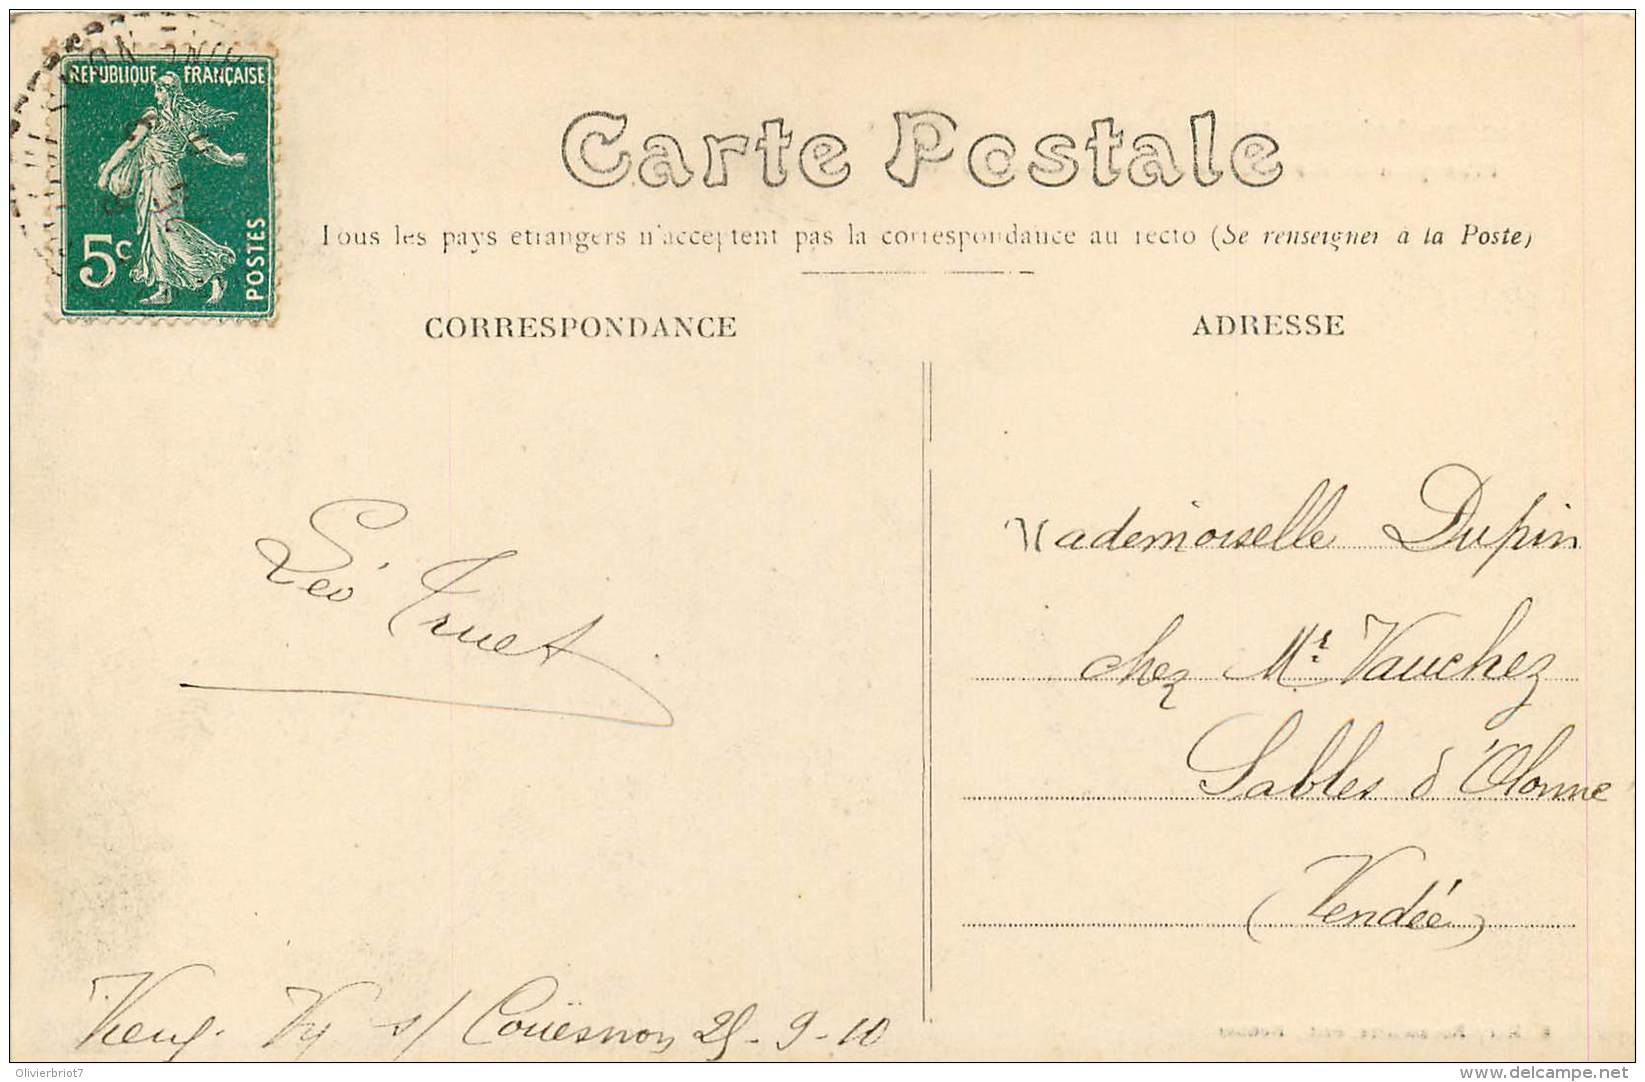 REPUBLIQUE FRANÇAISE
5c
POSTES
Carte Postale
Tous les pays etrangers n'acceptent pas la correspondance au recto (Se renseigner à la Poste)
CORRESPONDANCE
ADRESSE
Léo Truet
Mademoiselle Dupin
chez Mr. Vauchez
Sables d'Olonne
(Vendée)
Vy s/ Couësnon 25-9-10
Olivierbriot7
www.delcampe.net